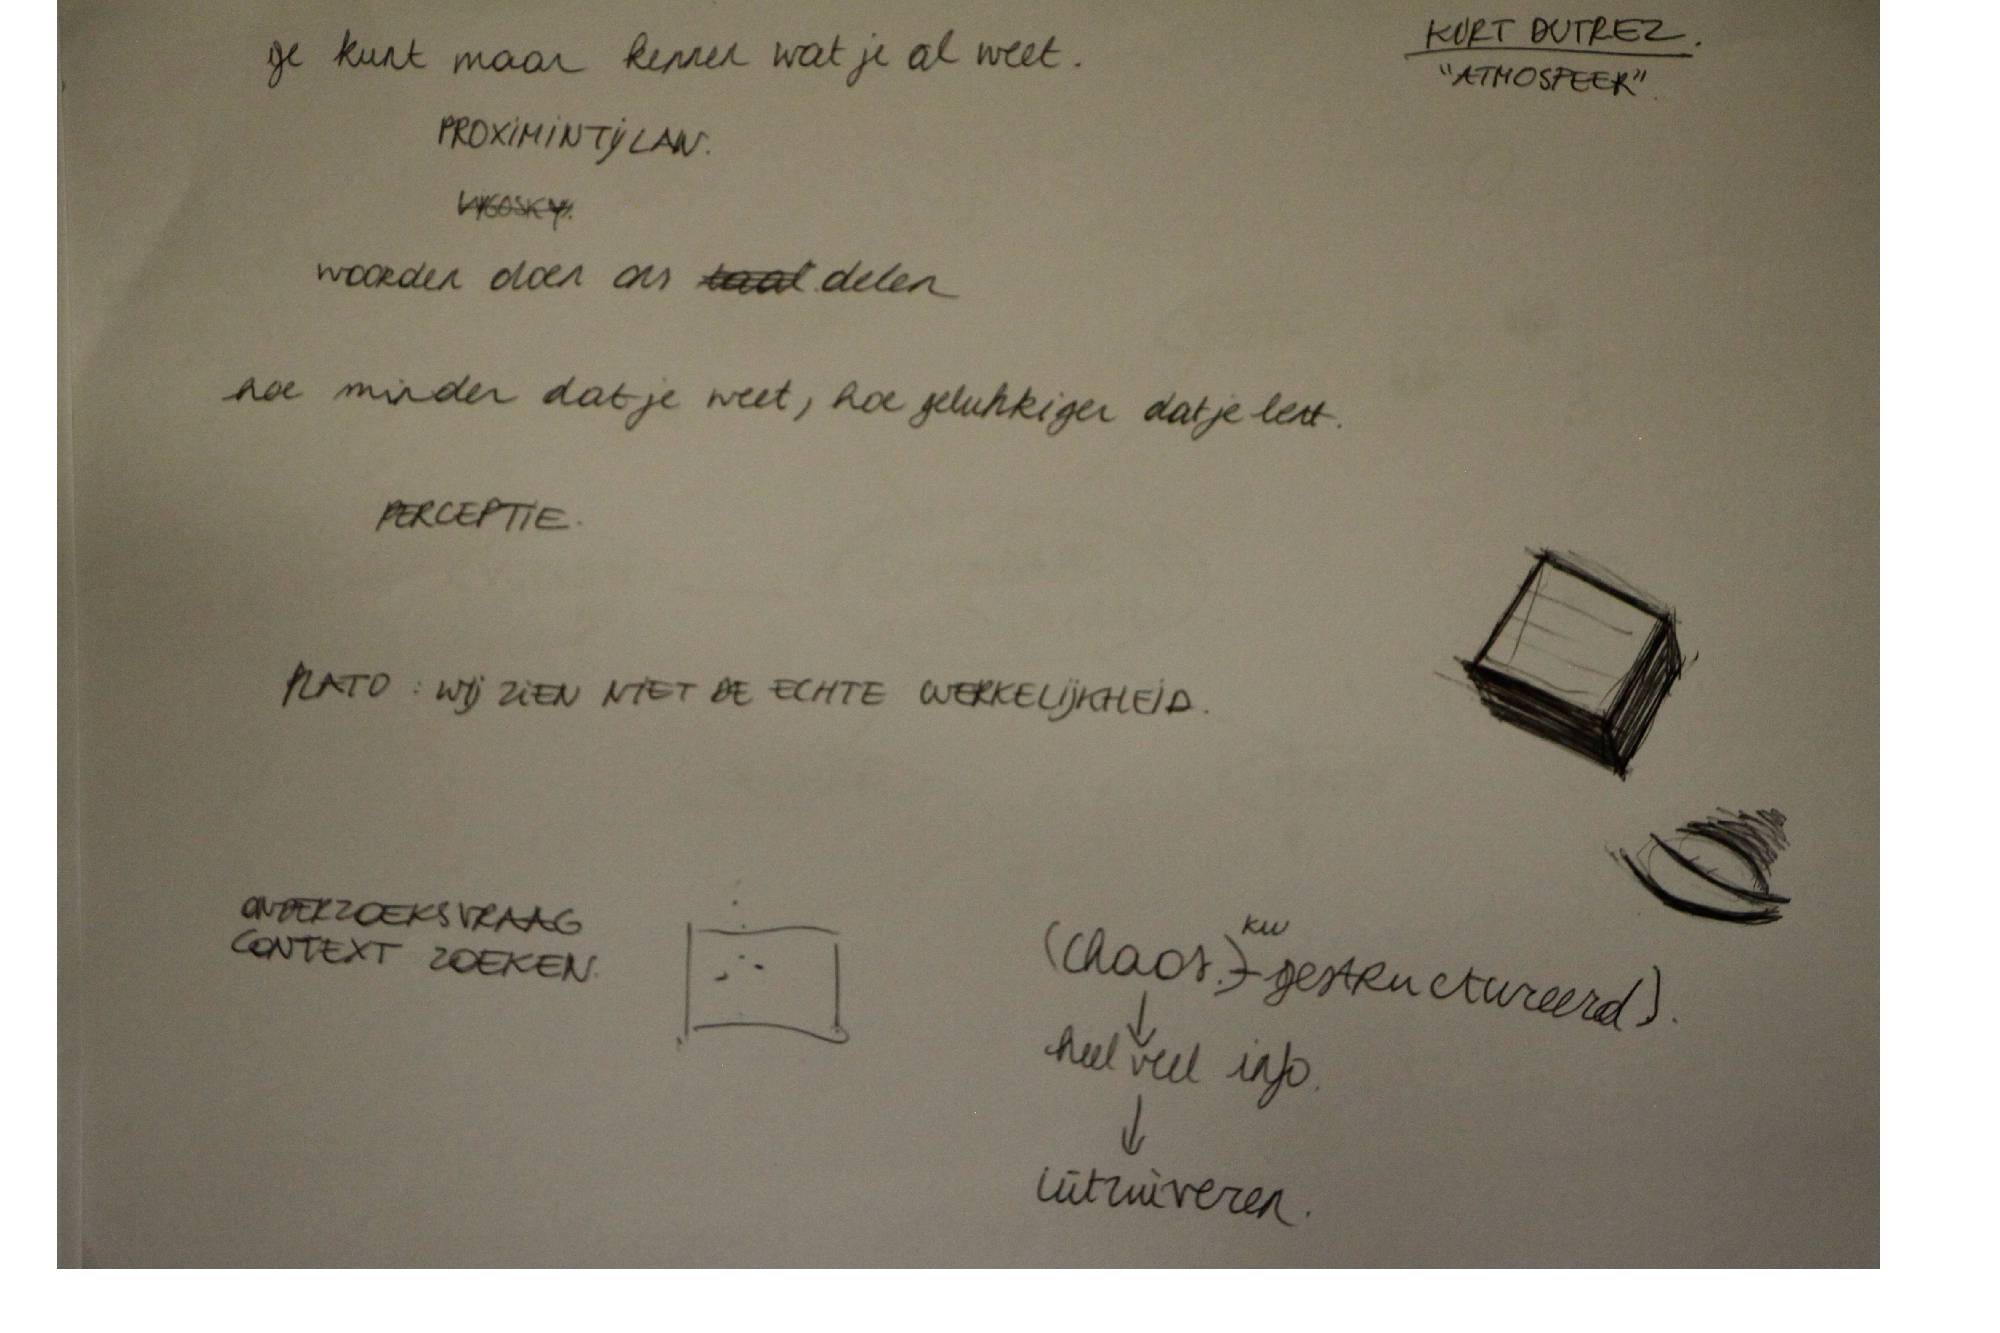 ge kunt maar kennen wat je al weet.
KURT DUTREZ.
"ATMOSPEER".
PROXIMINTIJLAN.
woorden doen ons taal delen
hoe minder dat je weet, hoe gelukkiger dat je bent.
PERCEPTIE.
PLATO : WIJ ZIEN NIET DE ECHTE WERKELIJKHEID.
ONDERZOEKSVRAAG
CONTEXT ZOEKEN.
(chaos.) gestructureerd).
heel veel info.
uitzuiveren.